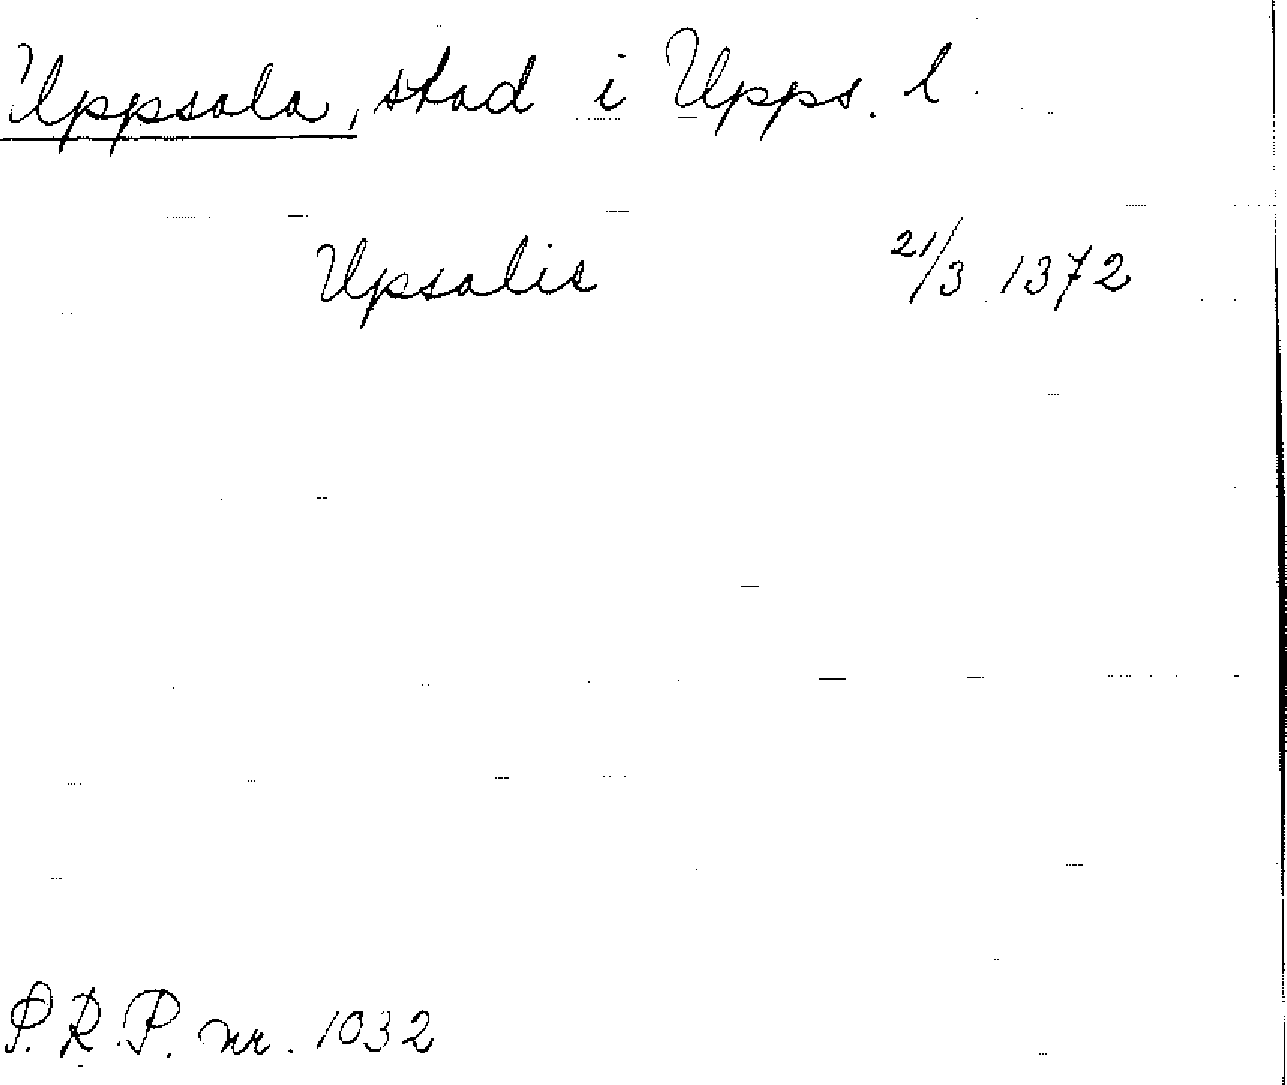 Uppsala, stad i Upps. l.
Upsalis 21/3 1372
P.R.P. nr. 1032